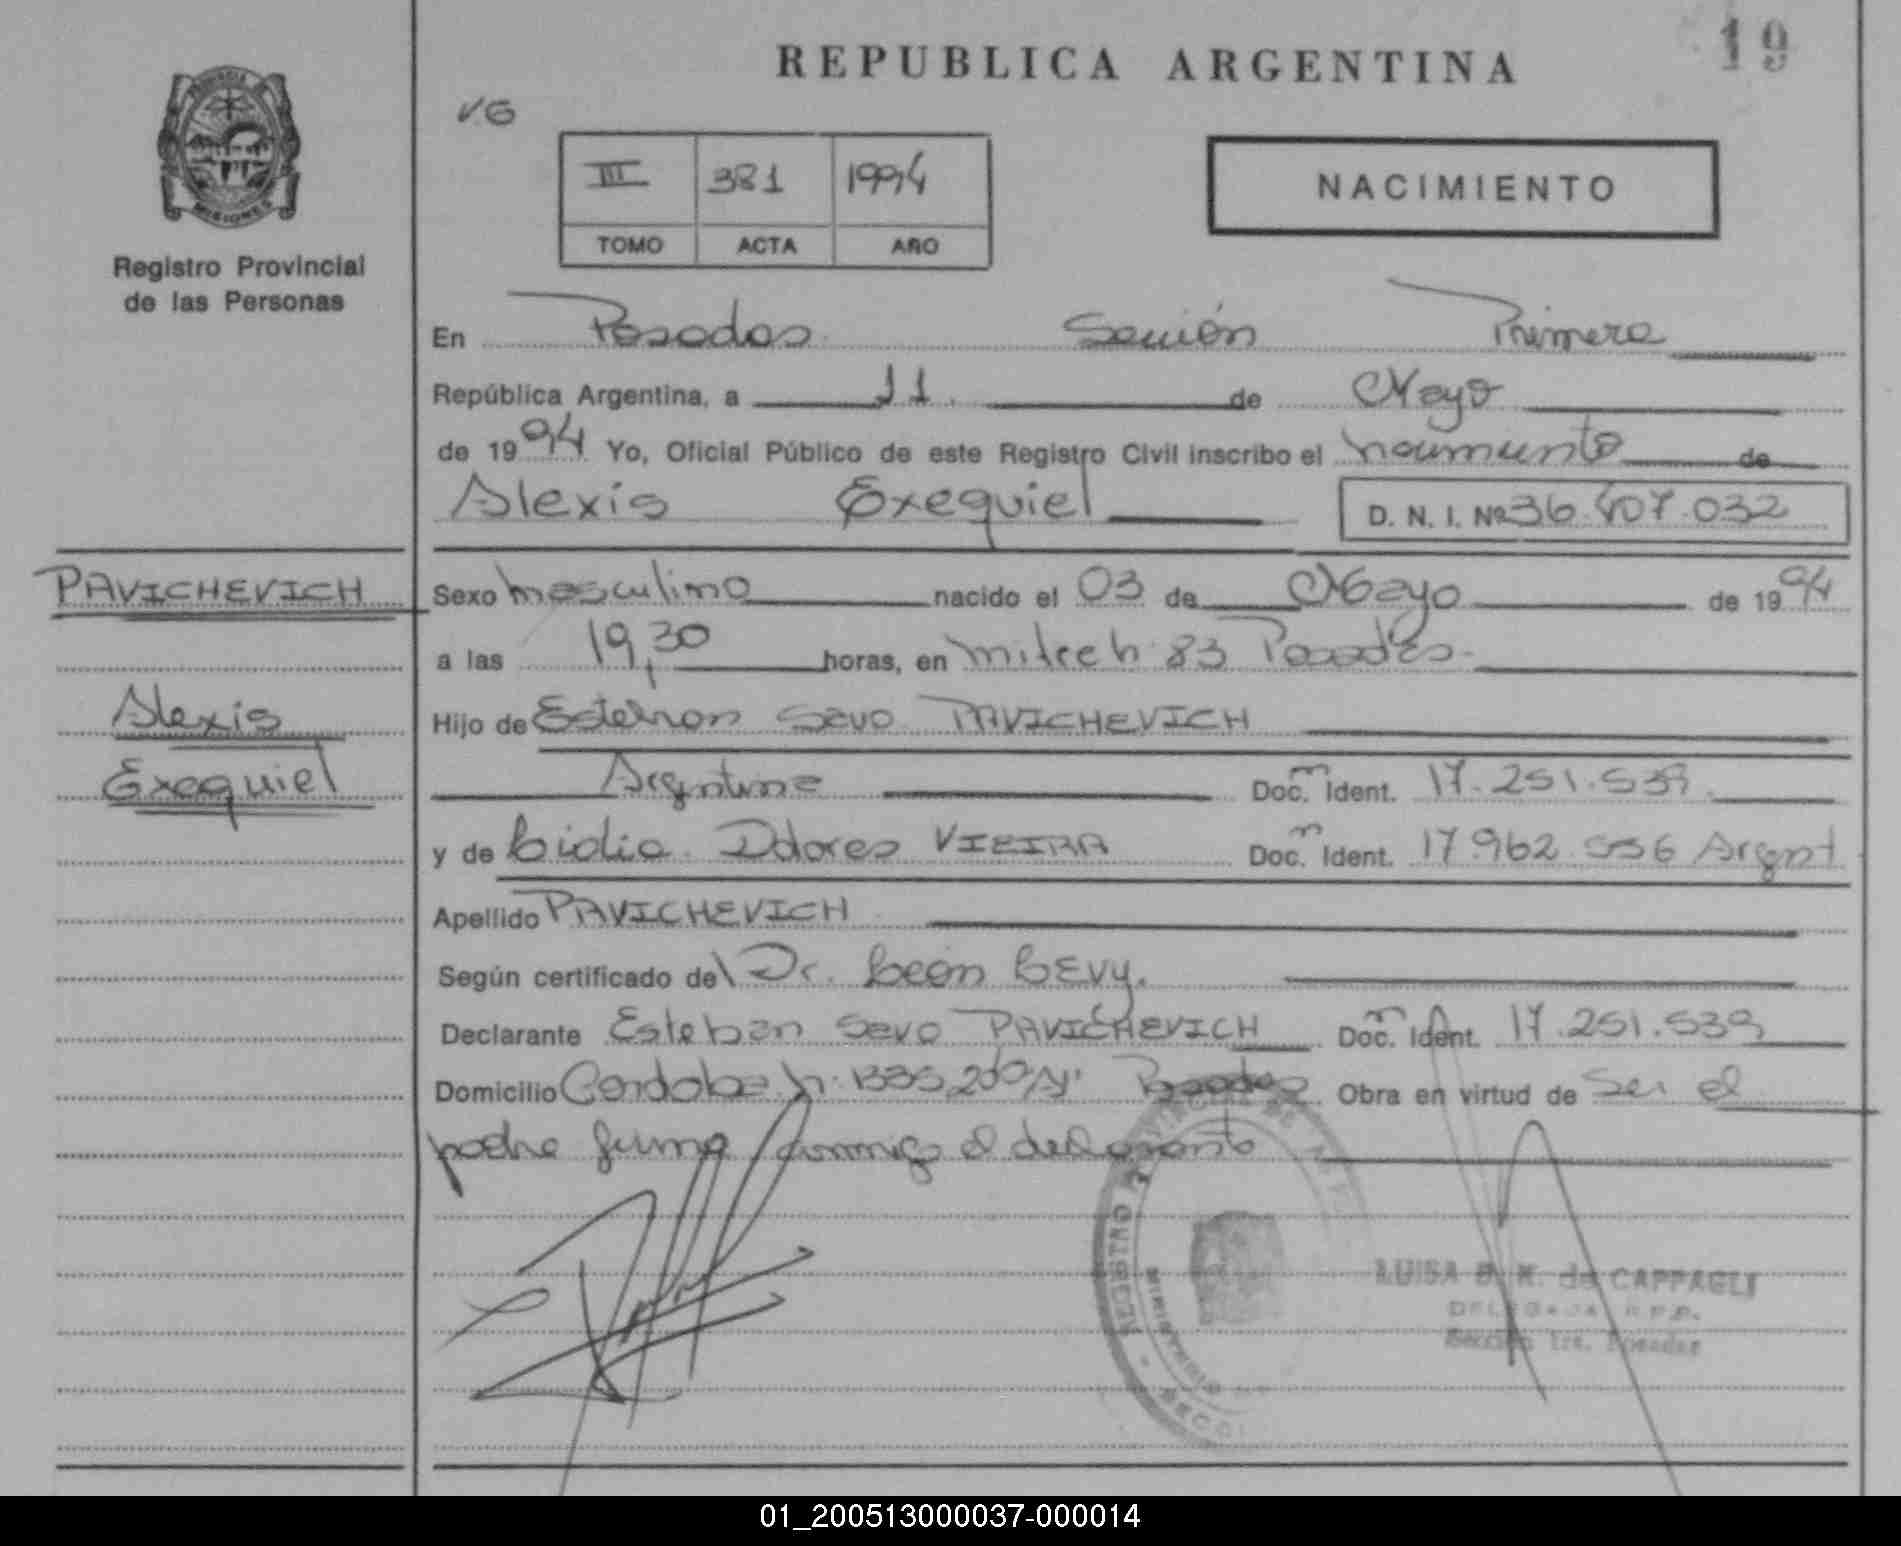 19
REPUBLICA ARGENTINA
VG
III 381 1994
TOMO ACTA AÑO
NACIMIENTO
MISIONES
Registro Provincial
de las Personas
En Posadas Sección Primera
República Argentina, a 11 de Mayo
de 1994 Yo, Oficial Público de este Registro Civil inscribo el nacimiento de
Alexis Exequiel D. N. I. Nº 36.407.032
PAVICHEVICH
Alexis
Exequiel
Sexo masculino nacido el 03 de Mayo de 1994
a las 19,30 horas, en mitre n 83 Posadas
Hijo de Esteban Savo PAVICHEVICH
Argentina Doc. Ident. 17.251.539
y de Lidia Dolores VIEIRA Doc. Ident. 17.962.536 Argent
Apellido PAVICHEVICH
Según certificado del Dr. León LEVY.
Declarante Esteban Savo PAVICHEVICH Doc. Ident. 17.251.539
Domicilio Cordoba n. 1335 Posadas Obra en virtud de Ser el
padre firma conmigo el declarante
REGISTRO
MINISTERIO
LUISA B. K. de CAPPAGLI
DELEGADA R.P.P.
Sección 1ra. Posadas
01_200513000037-000014